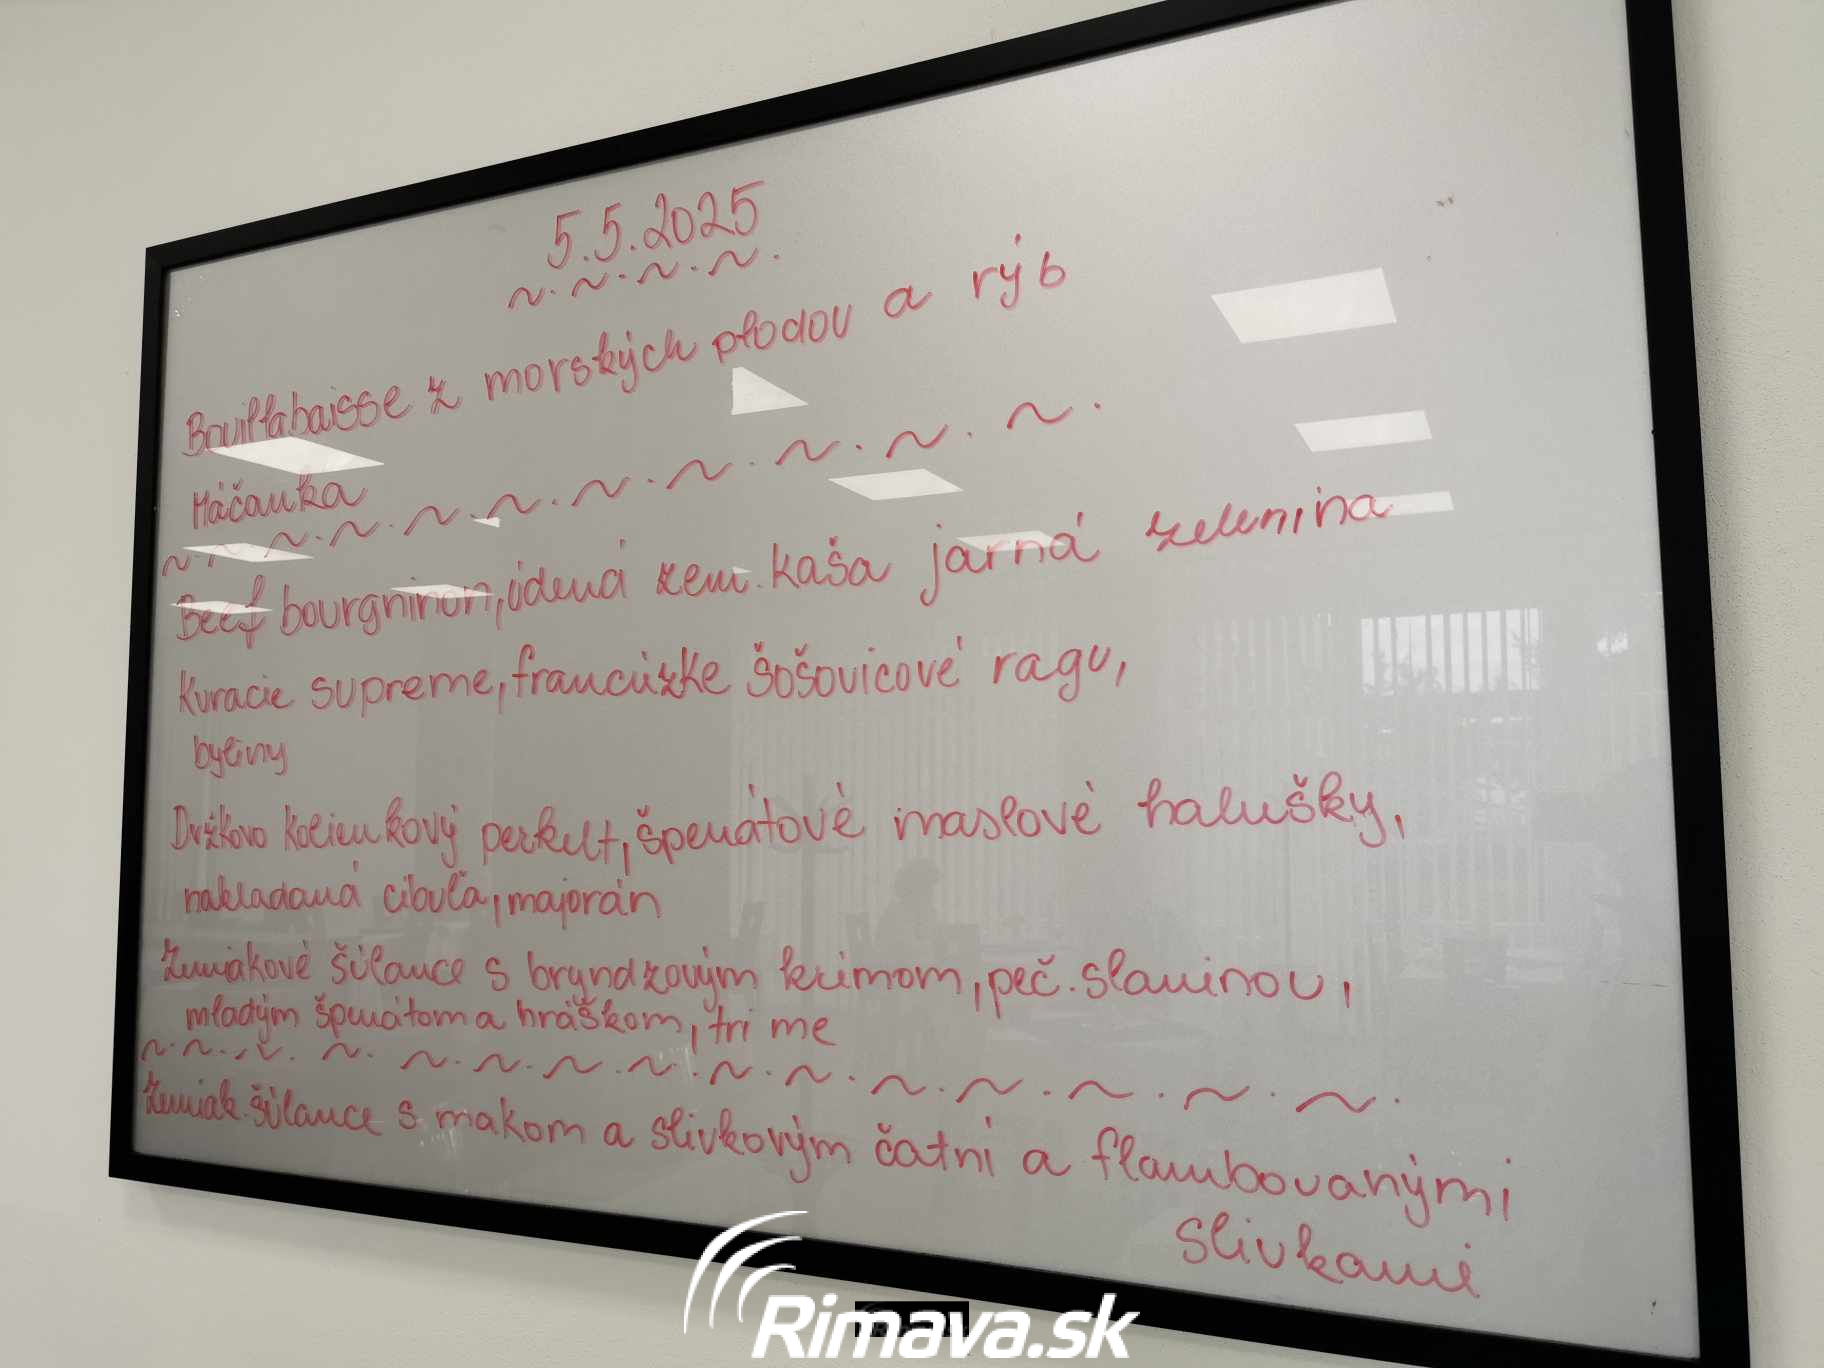 5.5.2025
Bouillabaisse z morských plodov a rýb
Máčanka
Beef bourgninon, údená zem. kaša jarná zelenina
Kuracie supreme, francúzke šošovicové ragu,
byliny
Držkovo kolienkový perkelt, špenátové maslové halušky,
nakladaná cibuľa, majorán
Zemiakové šúlance s bryndzovým krémom, peč. slaninou,
mladým špenátom a hráškom, tri me
Zemiak. šúlance s makom a slivkovým čatní a flambovanými
slivkami
Rimava.sk